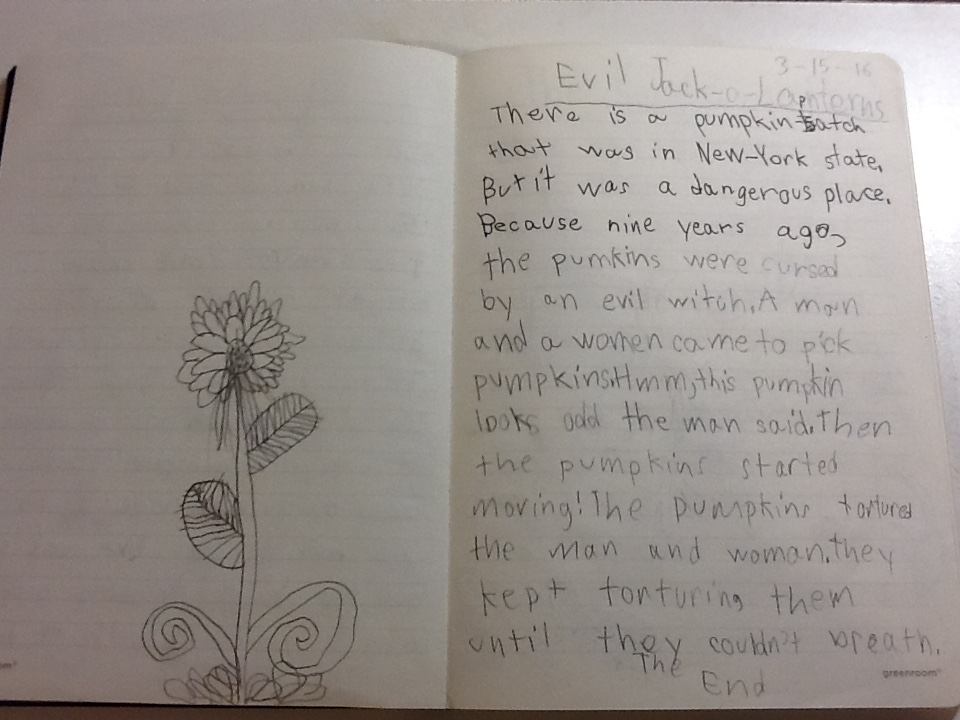 3-15-16
Evil Jack-o-Lanterns
There is a pumpkin patch
that was in New-York state.
But it was a dangerous place.
Because nine years ago,
the pumkins were cursed
by an evil witch. A man
and a women came to pick
pumpkins. Hmm, this pumpkin
looks odd the man said. Then
the pumpkins started
moving! The pumpkins tortured
the man and woman. they
kept tonturing them
until they couldn't breath.
The
End
greenroom
om